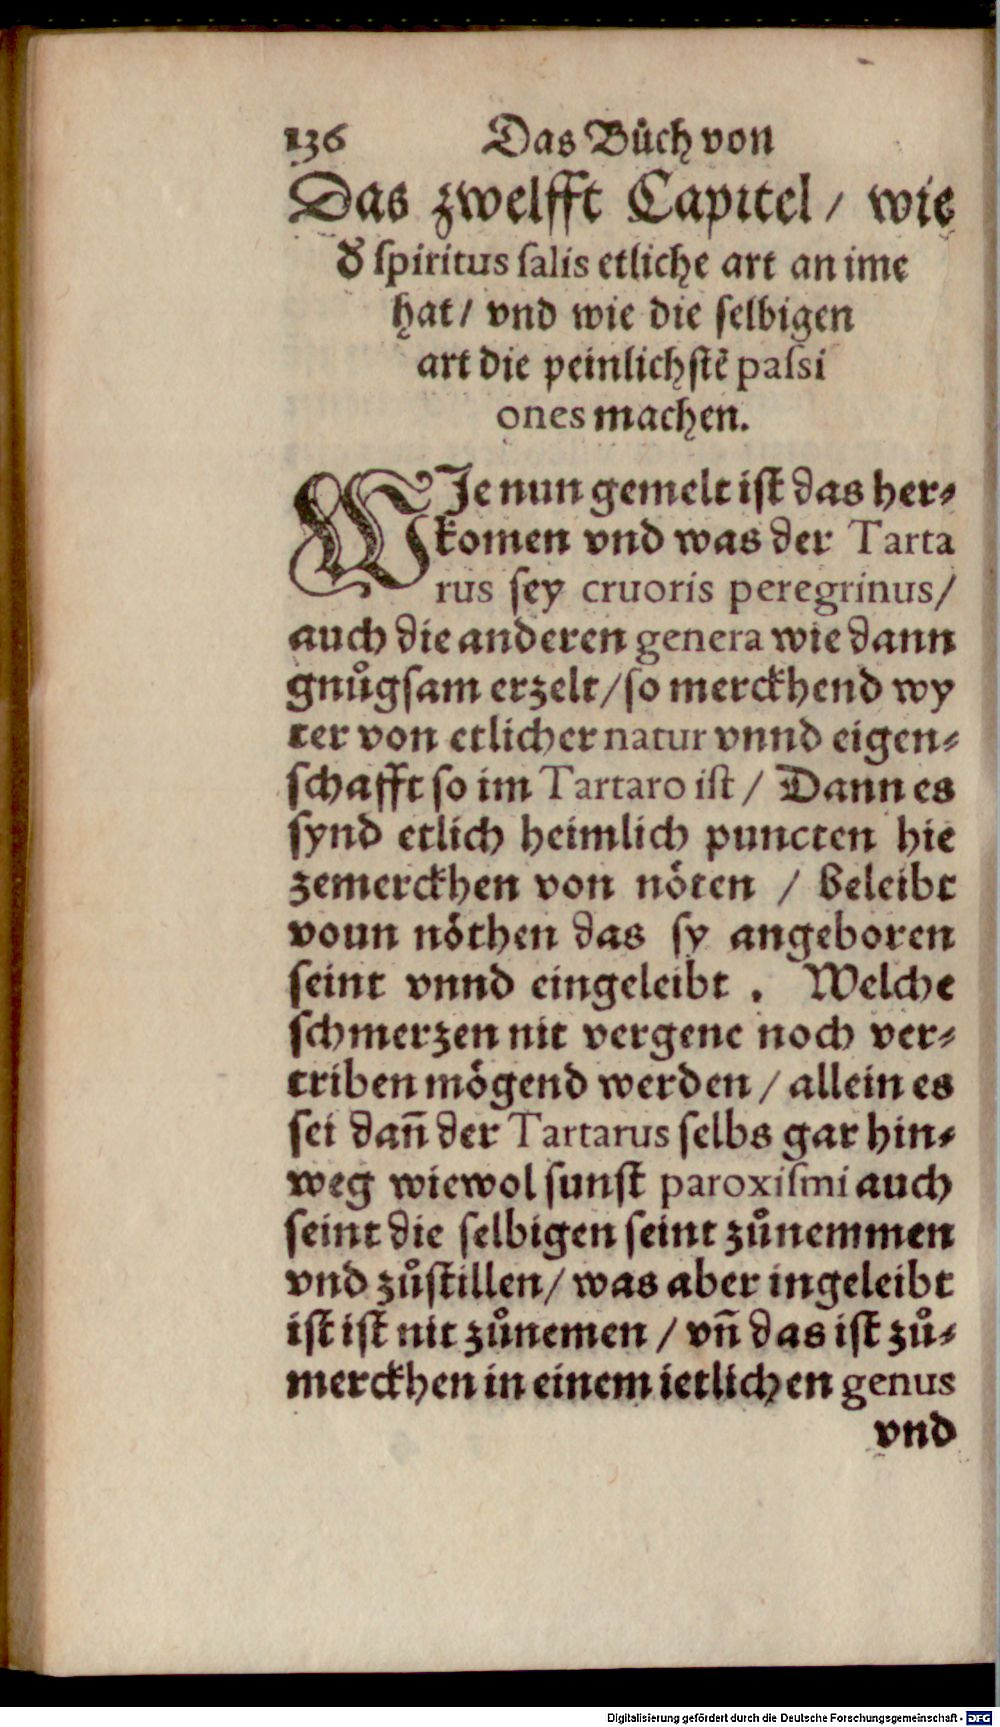 136 Das Bůch von
Das zwelfft Capitel / wie
d̕ spiritus salis etliche art an ime
hat / vnd wie die selbigen
art die peinlichstē passi
ones machen.
WIe nun gemelt ist das her⸗
komen vnd was der Tarta
rus sey cruoris peregrinus /
auch die anderen genera wie dann
gnůgsam erzelt / so merckhend wy
ter von etlicher natur vnnd eigen⸗
schafft so im Tartaro ist / Dann es
synd etlich heimlich puncten hie
zemerckhen von nöten / beleibt
voun nöthen das sy angeboren
seint vnnd eingeleibt . Welche
schmerzen nit vergene noch ver⸗
triben mögend werden / allein es
sei dañ der Tartarus selbs gar hin⸗
weg wiewol sunst paroxismi auch
seint die selbigen seint zůnemmen
vnd zůstillen / was aber ingeleibt
ist ist nit zůnemen / vñ das ist zů⸗
merckhen in einem ietlichen genus
vnd
Digitalisierung gefördert durch die Deutsche Forschungsgemeinschaft - DFG